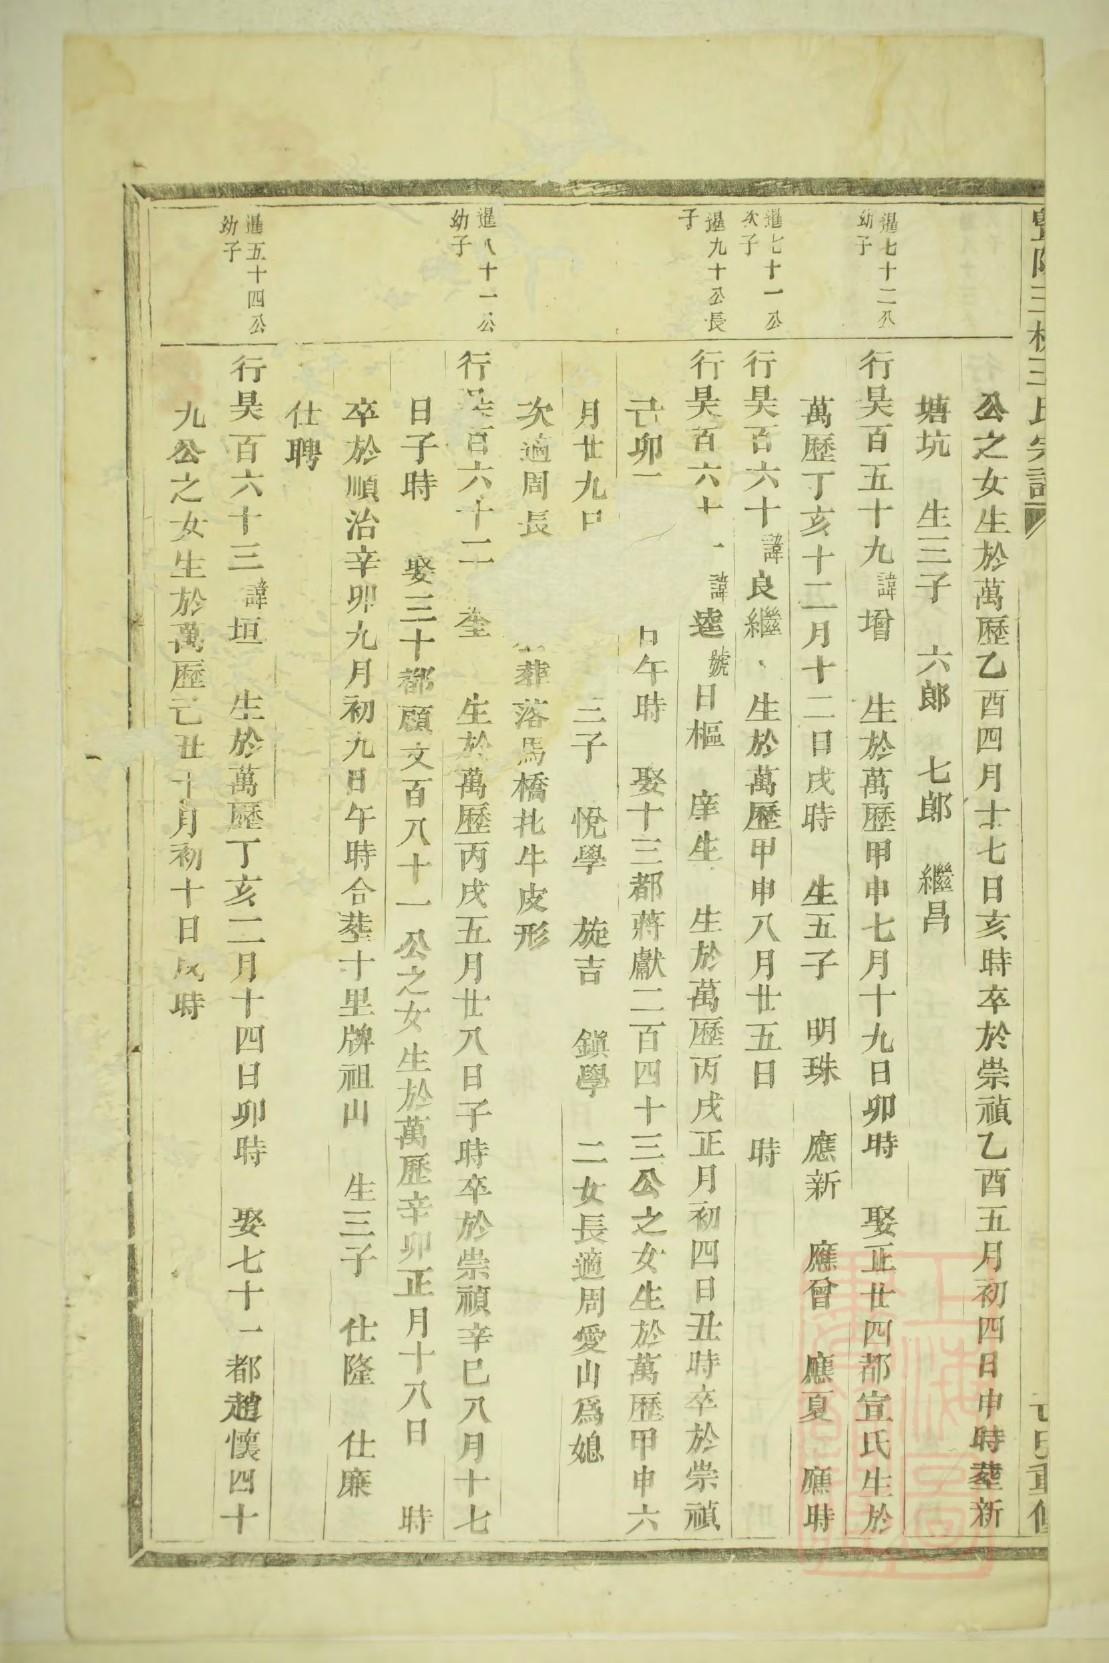 公之女生於萬歷乙酉四月十七日亥時卒於崇禎乙酉五月初四日申時塟新
塘坑 生三子 六郎 七郎 繼昌
暹七十二公
幼子
行昊百五十九諱增 生於萬歷甲申七月十九日卯時 娶正廿四都宣氏生於
萬歷丁亥十二月十二日戌時 生五子 明珠 應新 應曾 應夏 應時
暹七十一公
次子
行昊百六十諱良繼 生於萬歷甲申八月廿五日 時
暹九十公長
子
行昊百六十一諱達號日樞 庠生 生於萬歷丙戌正月初四日丑時卒於崇禎
己卯 日午時 娶十三都蔣獻二百四十三公之女生於萬歷甲申六
月廿九日 三子 悅學 旋吉 鎮學 二女長適周愛山爲媳
次適周長 葬落馬橋牝牛皮形
暹八十一公
幼子
行昊百六十二 生於萬歷丙戌五月廿八日子時卒於崇禎辛巳八月十七
日子時 娶三十都顧文百八十一公之女生於萬歷辛卯正月十八日 時
卒於順治辛卯九月初九日午時合塟十里牌祖山 生三子 仕隆 仕廉
仕聘
暹五十四公
幼子
行昊百六十三諱垣 生於萬歷丁亥二月十四日卯時 娶七十一都趙懷四十
九公之女生於萬歷己丑十月初十日戌時